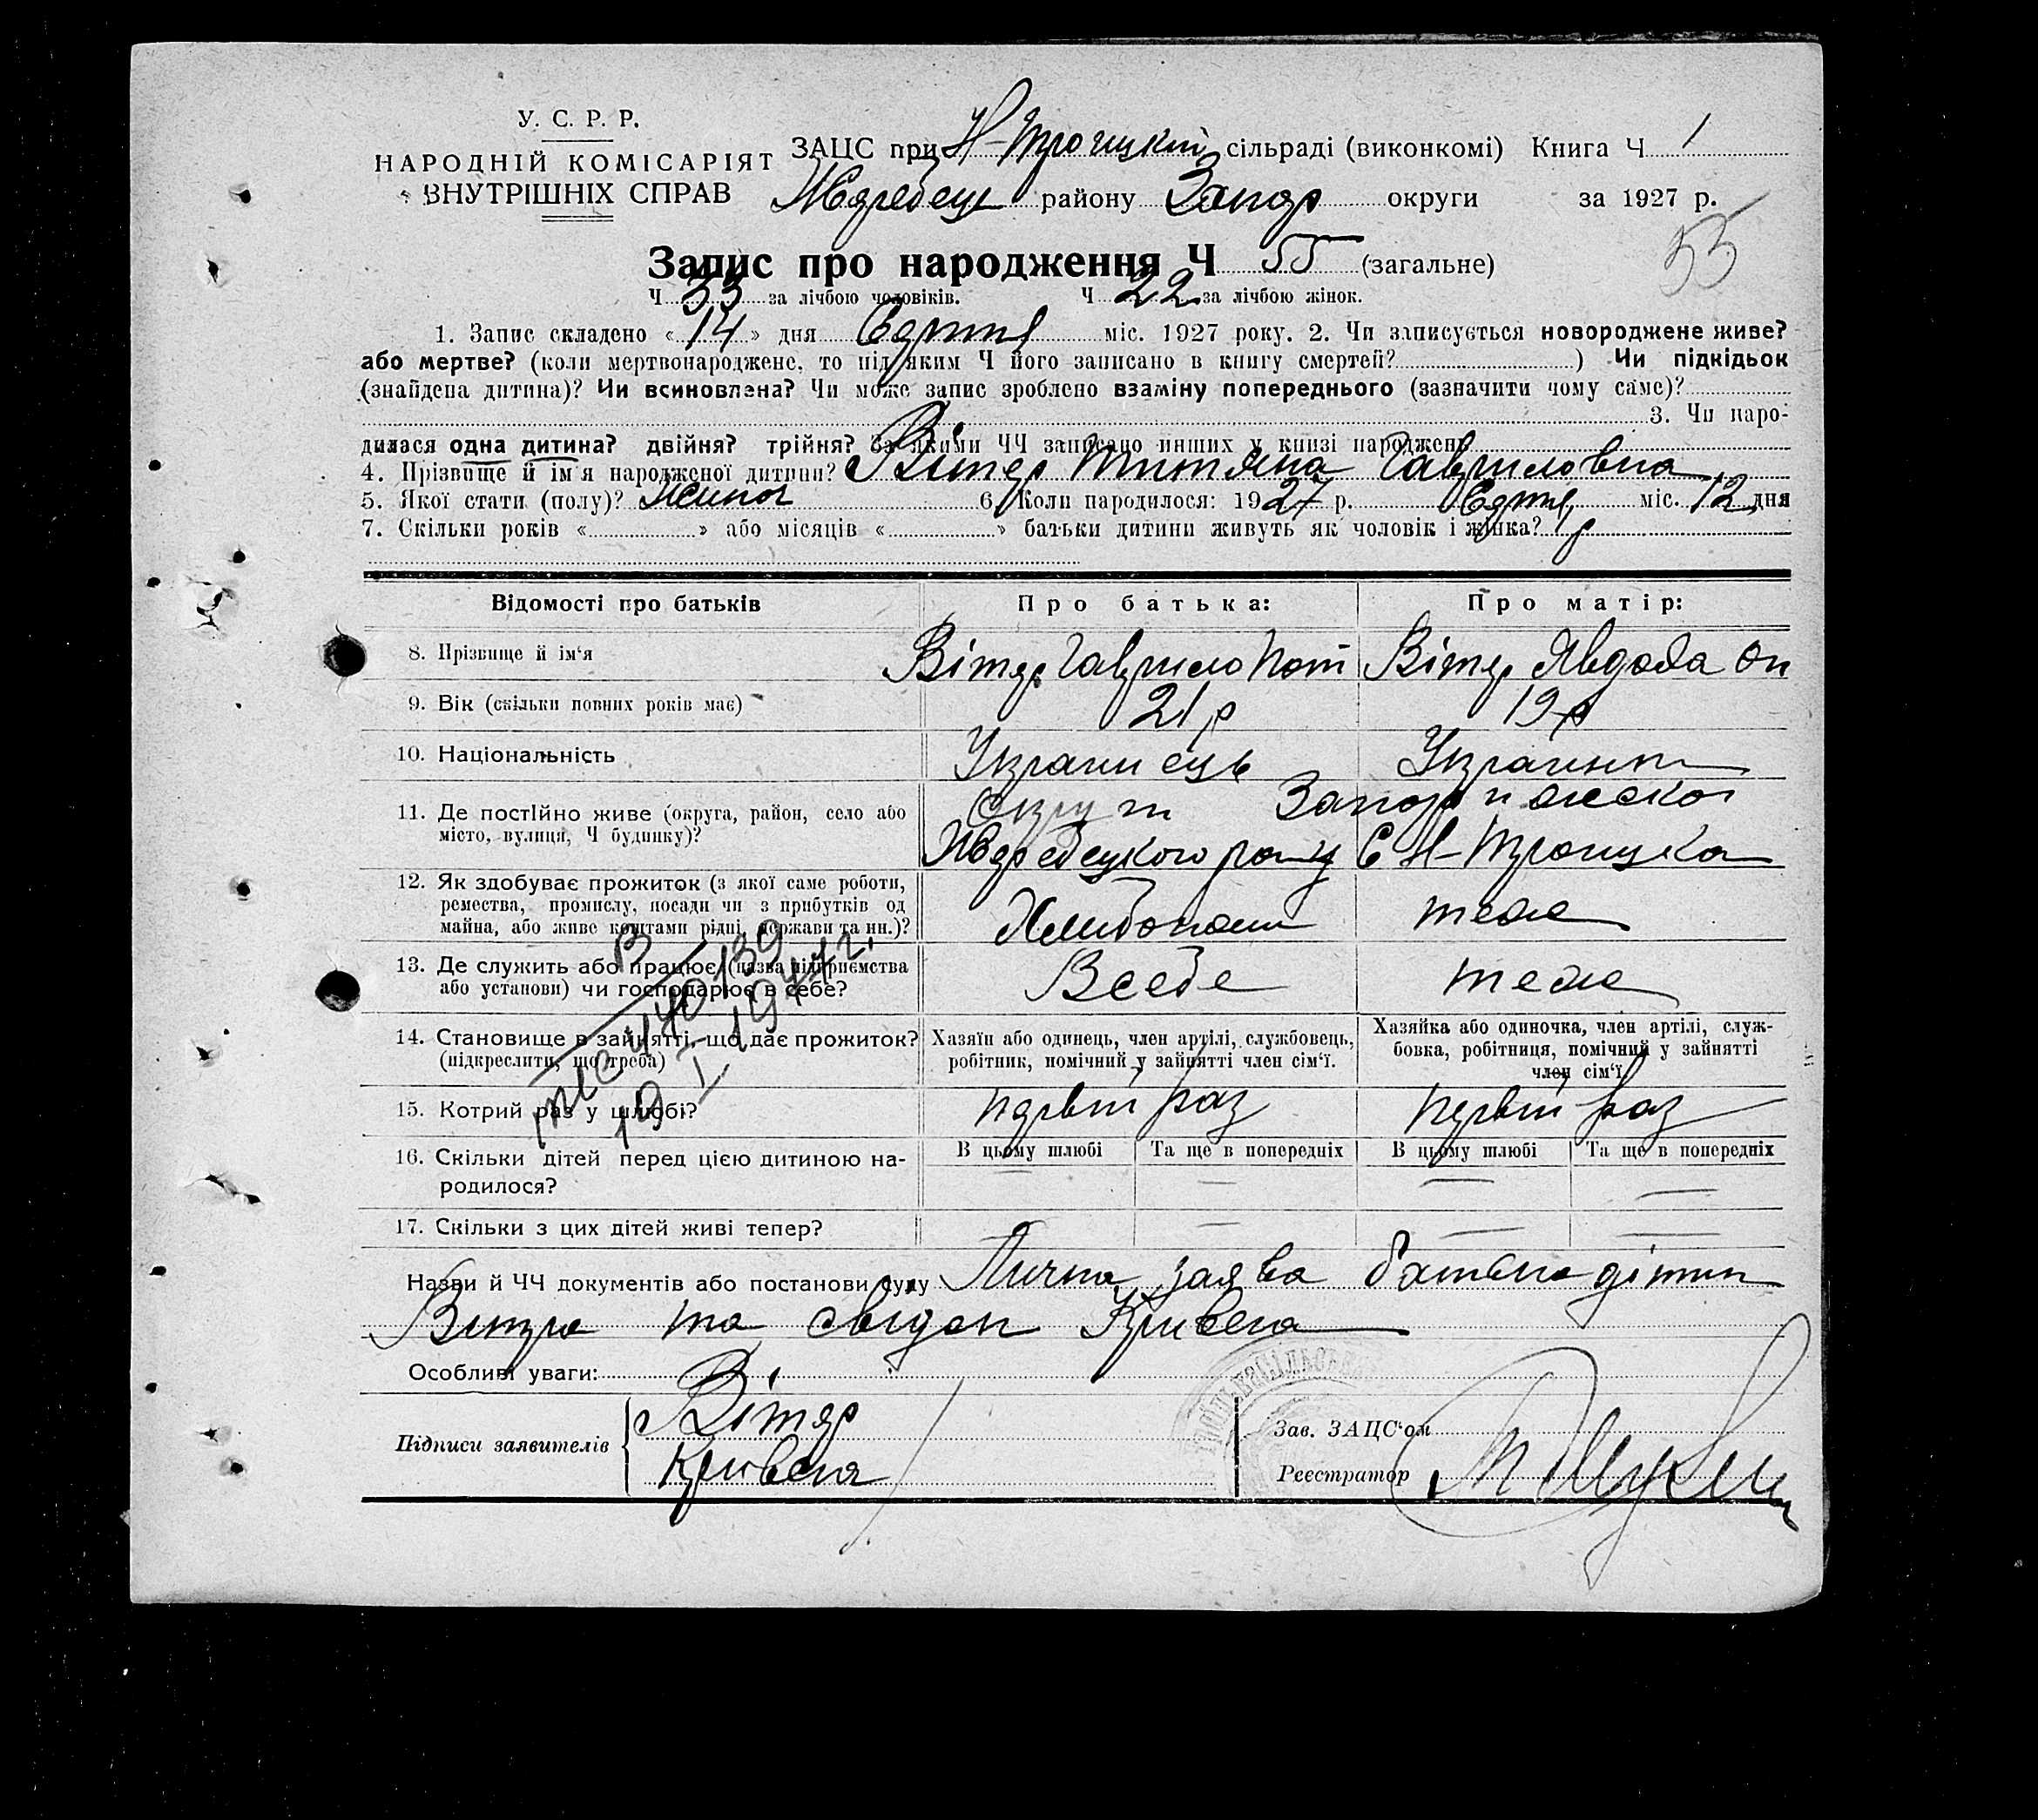 У. С. Р. Р.
НАРОДНІЙ КОМІСАРІЯТ
ВНУТРІШНІХ СПРАВ
ЗАЦС при Н-Троицкій сільраді (виконкомі) Книга Ч 1
Жеребец району Запор округи за 1927 р.
55
Запис про народження Ч 55 (загальне)
Ч 33 за лічбою чоловіків. Ч 22 за лічбою жінок.
1. Запис складено «14» дня міс. 1927 року. 2. Чи записується новороджене живе?
або мертве? (коли мертвонароджене, то під яким Ч його записано в книгу смертей? ) Чи підкідьок
(знайдена дитина)? Чи всиновлена? Чи може запис зроблено взаміну попереднього (зазначити чому саме)?
3. Чи наро-
дилася одна дитина? двійня? трійня? За якими ЧЧ записано инших у книзі народжень
4. Прізвище й ім'я народженої дитини? Вітер Титяна Гавриловна
5. Якої стати (полу)? Жиноч 6. Коли народилося: 1927 р. міс. 12 дня
7. Скільки років « » або місяців « » батьки дитини живуть як чоловік і жінка?
Відомості про батьків Про батька: Про матір:
8. Прізвище й ім'я Вітер Гаврило Пот Вітер Явдоха Он
9. Вік (скільки повних років має) 21 р 19 р
10. Національність Украинець Украинка
11. Де постійно живе (округа, район, село або
місто, вулиця, Ч будинку)?
Жеребецкого С Н-Троицка
12. Як здобуває прожиток (з якої саме роботи,
ремества, промислу, посади чи з прибутків од
майна, або живе коштами рідні, держави та ин.)?
Хлибопаш теже
13. Де служить або працює (назва підприємства
або установи) чи господарює в себе?
Всебе теже
14. Становище в зайнятті, що дає прожиток?
(підкреслити, що треба)
Хазяїн або одинець, член артілі, службовець,
робітник, помічний у зайнятті член сім'ї.
Хазяйка або одиночка, член артілі, служ-
бовка, робітниця, помічний у зайнятті
член сім'ї.
15. Котрий раз у шлюбі? первій раз первій раз
19 I 1944 г.
16. Скільки дітей перед цією дитиною на-
родилося?
В цьому шлюбі Та ще в попередніх В цьому шлюбі Та ще в попередніх
17. Скільки з цих дітей живі тепер?
Назви й ЧЧ документів або постанови суду Лична заява батька дитин
Витра та свідок Кривеня
Особливі уваги:
Підписи заявителів Вітер
Кривеня
Зав. ЗАЦС'ом
Реєстратор